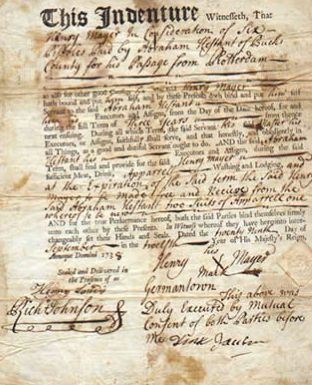 This Indenture Witnesseth, That
Henry Mayer in Consideration of Six
Paid by Abraham Hestant of Bucks
County for his Passage from Rotterdam
as also for other good Causes he the said Henry Mayer
hath bound and put him self, and by these Presents doth bind and put him self
to the said Abraham Hestant
Executors and Assigns, from the Day of the Date hereof, for and
during the full Term of Years from thence
next ensuing. During all which Term, the said Servant his said Master
Executors, or Assigns, faithfull shall serve, and that honestly and obediently in
all Things, as a good and dutiful Servant ought to do. AND the said Abraham
Hestant his Executors and Assigns, during the
Term, shall find and provide for the said Henry Mayer
sufficient Meat, Drink, Apparrel Washing and Lodging, and
at the Expiration of the Said term the Said Henry
Mayer is made free and Recieve from the
Said Abraham Hestant two Suits of Apparrel one
whereof to be new
AND for the true Performance hereof, both the said Parties bind themselves firmly
unto each other by these Presents. In Witness whereof they have hereunto inter-
changeably set their Hands and Seals. Dated the twenty Ninth Day of
September in the twelfth Year of His Majesty's Reign,
Annoque Domini 1738
his
Henry Mayer
Mark
Sealed and Delivered in
the Presence of us
Germantown
This above was
Rich Johnson
Duly Executed by Mutual
Consent of both Parties before
Me